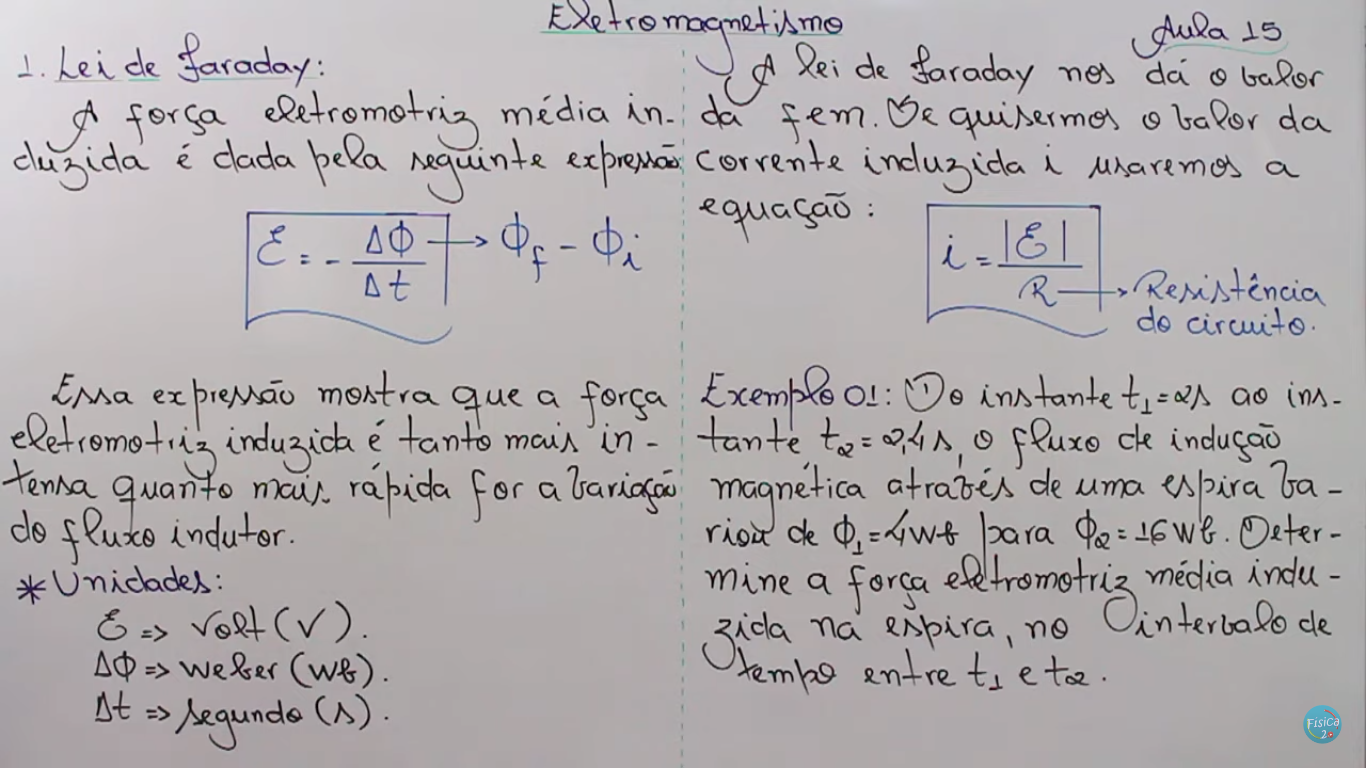 Eletromagnetismo
Aula 15
1. Lei de Faraday:
A força eletromotriz média in-
duzida é dada pela seguinte expressão
ε = - ΔΦ/Δt → Φf - Φi
Essa expressão mostra que a força
eletromotriz induzida é tanto mais in-
tensa quanto mais rápida for a variação
do fluxo indutor.
* Unidades:
ε => Volt (V).
ΔΦ => Weber (Wb).
Δt => segundo (s).
A lei de Faraday nos dá o valor
da fem. Se quisermos o valor da
corrente induzida i usaremos a
equação:
i = |ε|/R → Resistência
do circuito.
Exemplo 01: ① Do instante t1=2s ao ins-
tante t2=2,4s, o fluxo de indução
magnética através de uma espira va-
riou de Φ1=4Wb para Φ2=16Wb. Deter-
mine a força eletromotriz média indu-
zida na espira, no intervalo de
tempo entre t1 e t2.
Física
2.0